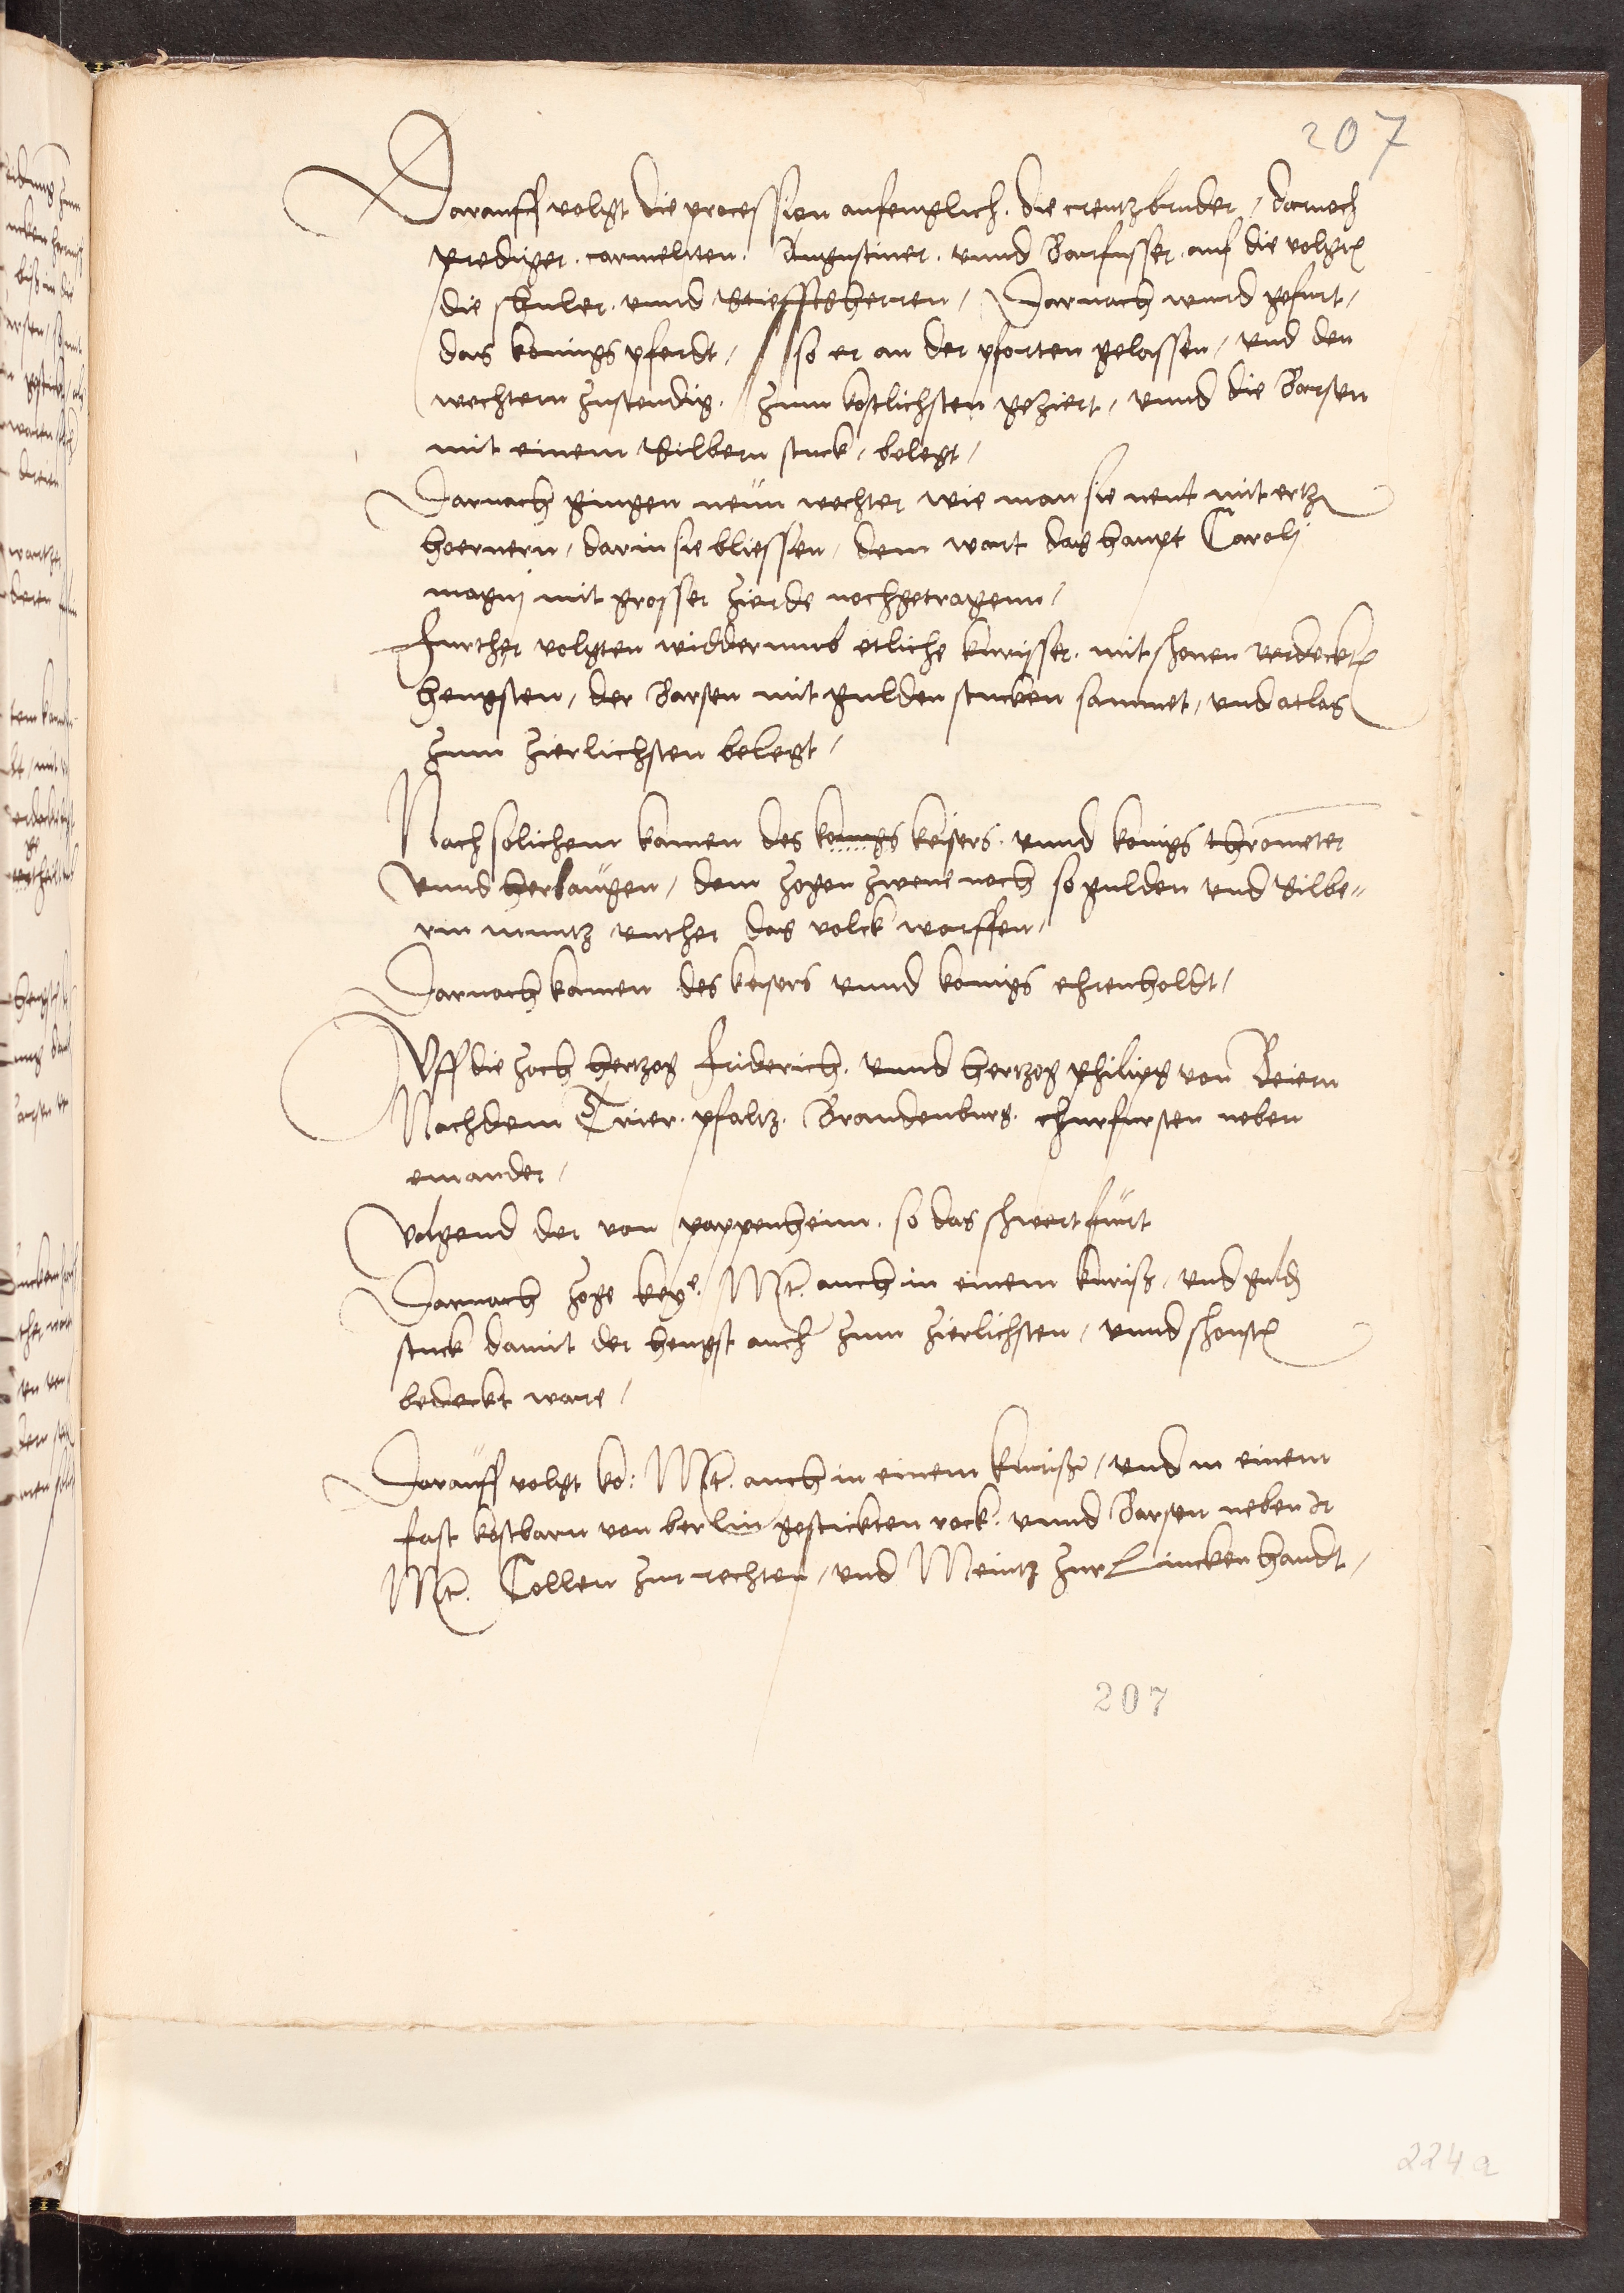 207
Darauff volgt die procession anfenglich. die creutzbruder / darnoch
prediger. carmeliten. Augustiner. vnnd Barfusser. auf die volgten
die schuler. vnnd Stiefftsherren / Darnach wurd gefurt /
das konings pferdt / so er an der pforten gelassen / vnd den
wechtern zustendig. zum kostlichsten geziert / vnnd die Barsen
mit einem Silbern stuck / belegt /
Darnach gingen neün wechter wie man sie nent mit ertz
hoernern / darin sie bliessen / dem wart das haupt Caroli
magni mit grosser zierde nochgetragenn /
Further volgten widderumb etliche kurisser. mit schonen verdeckten
hengsten / der Barsen mit gulden stucken sammet / vnd atlas
zum zierlichsten belegt /
Nach solichem kamen des konigs keisers. vnnd konigs throměter
vnnd herbaügen / dem zogen zwene noch so gulden vnd Silbe=
rin muntz vnther das volck worffen /
Darnach kamen des keisers vnnd konigs ehrenholdt /
Vff die zoch hertzog Friderich. vnnd hertzog philipp von Beiern
Nachdem Trier. pfaltz. Brandenburg. churfursten neben
einander /
Volgend der von pappenheim. so das schwert fürt
Darnach zoge keye. Mt. auch in einem kuriss / vnd guld
stuck damit der hengst auch zum zierlichsten / vnnd schonsten
bedeckt ware /
Darauff volgt ko: Mt. auch in einem kuriss / vnd in einem
fast kostbarn von berlin gestickten rock. vnnd Barsen neben Ir
Mt. Collen zur rechten / vnd Meintz zur Lincken handt /
207
224a